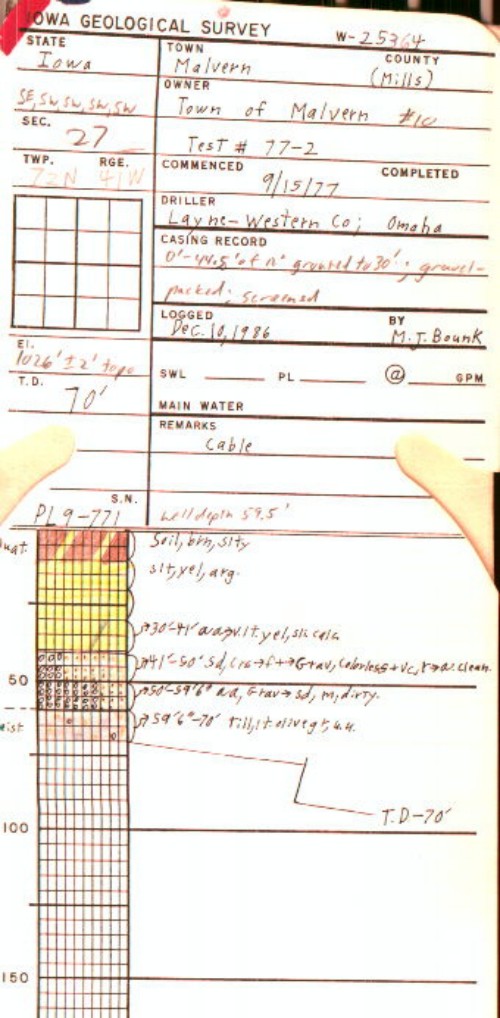 IOWA GEOLOGICAL SURVEY W-25364
STATE
Iowa
TOWN
Malvern
COUNTY
(Mills)
OWNER
Town of Malvern
Test # 77-2
SE, SW, SW, SW, SW
SEC.
27
TWP. RGE.
72N 41W
COMMENCED COMPLETED
9/15/77
DRILLER
Layne-Western Co; Omaha
CASING RECORD
0'-44.5' of grouted to 30'; gravel-
packed; screened
LOGGED BY
Dec. 10, 1986 M.J. Bounk
El.
1026' ±2' topo
T.D.
70'
SWL PL @ GPM
MAIN WATER
REMARKS
Cable
S.N.
PL9-771
well depth 59.5'
Quat.
Soil, brn, slty
slt, yel, arg.
30'-41' a/a→v.lt. yel, sli calc
41'-50' Sd, crs→f+→Grav, Colorless+vc, clean.
50
50'-59'6" a/a, Grav→sd, m, dirty.
59'6"-70' till, lt. olive gr, u.u.
T.D-70'
100
150